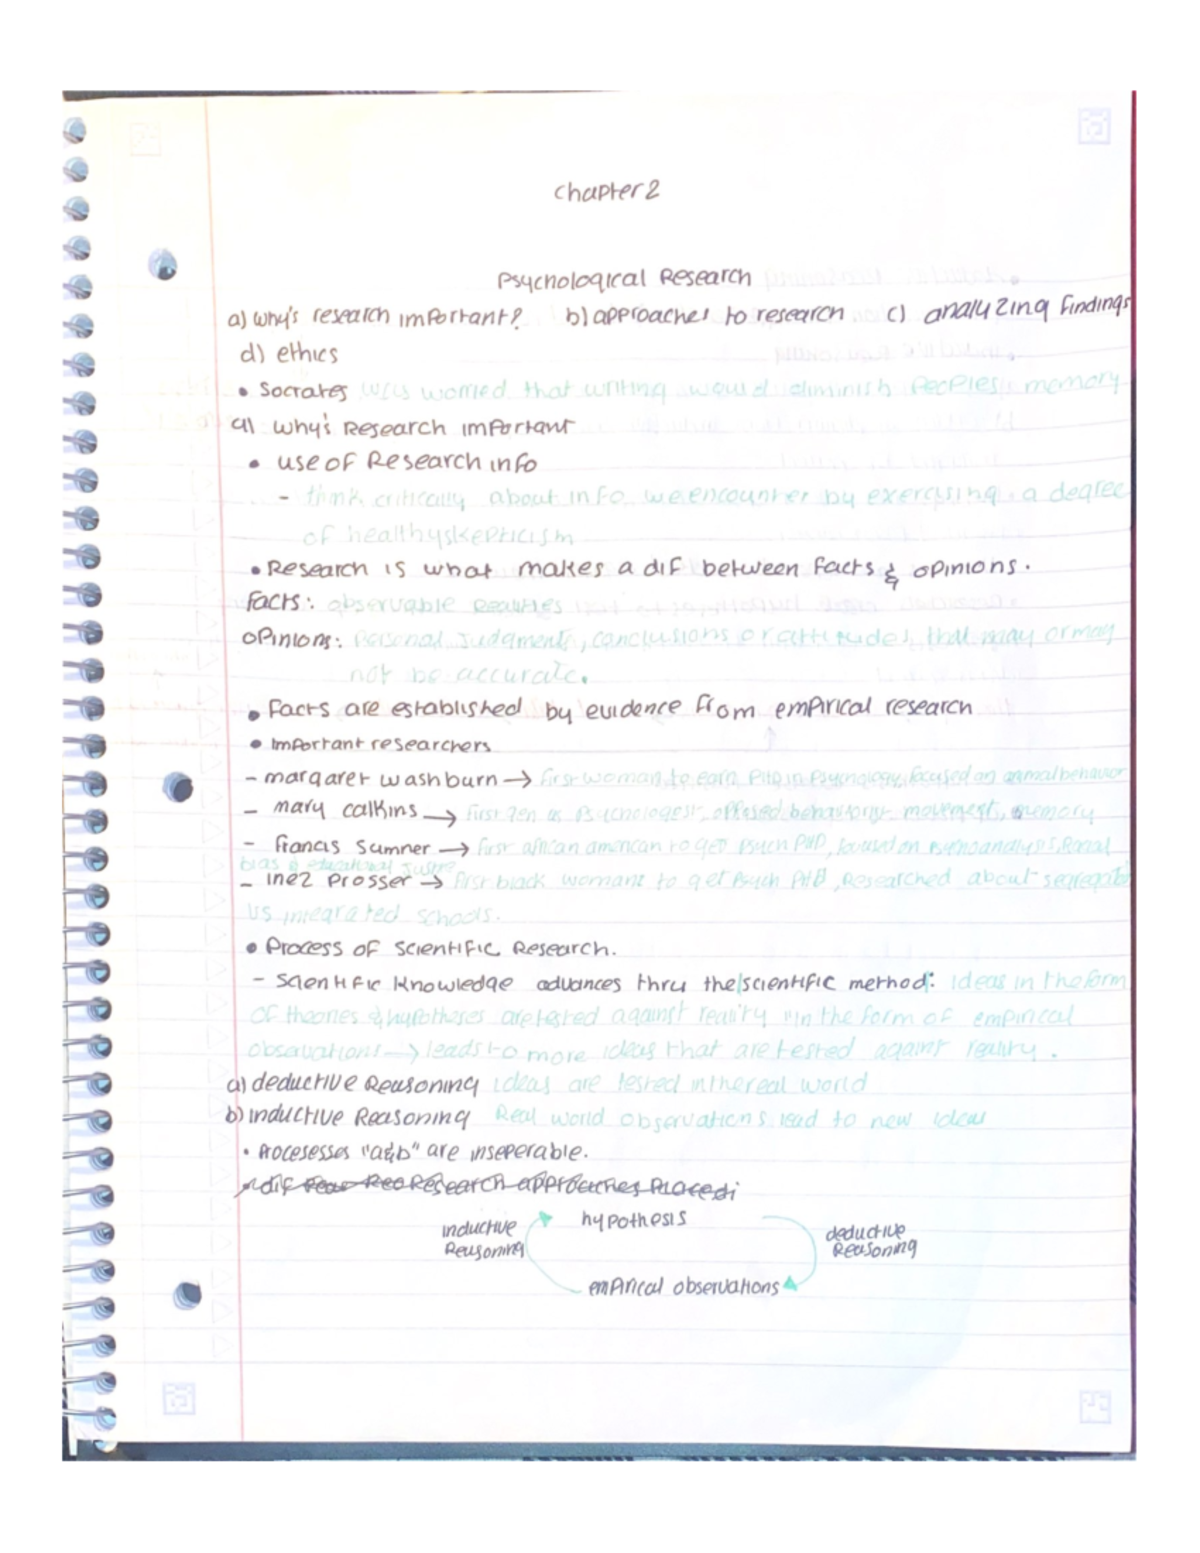 Chapter 2
Psychological Research
a) why's research important? b) approaches to research c) analyzing findings
d) ethics
• Socrates was worried that writing would diminish peoples memory
a) why's Research important
• use of Research info
- think critically about info we encounter by exercising a degree
of healthy skepticism
• Research is what makes a dif between facts & opinions.
facts: observable realities
opinions: Personal judgments, conclusions or attitudes that may or may
not be accurate.
• Facts are established by evidence from empirical research
• Important researchers
- margaret washburn → first woman to earn PHD in Psychology, focused on animal behavior
- mary calkins → first gen as psychologest, opposed behaviorist movement, memory
- francis sumner → first african american to get psych PHD, focused on psychoanalysis, Racial
bias & educational justice
- inez Prosser → first black womans to get Psych PHD, Researched about segregated
vs integrated schools.
• Process of scientific Research.
- Scientific Knowledge advances thru the scientific method: ideas in the form
of theories & hypotheses are tested against reality in the form of empirical
observations → leads to more ideas that are tested against reality.
a) deductive Reasoning ideas are tested in the real world
b) inductive Reasoning Real world observations lead to new ideas
• Processes "a&b" are inseperable.
dif Research approaches
inductive hypothesis deductive
Reasoning Reasoning
empirical observations